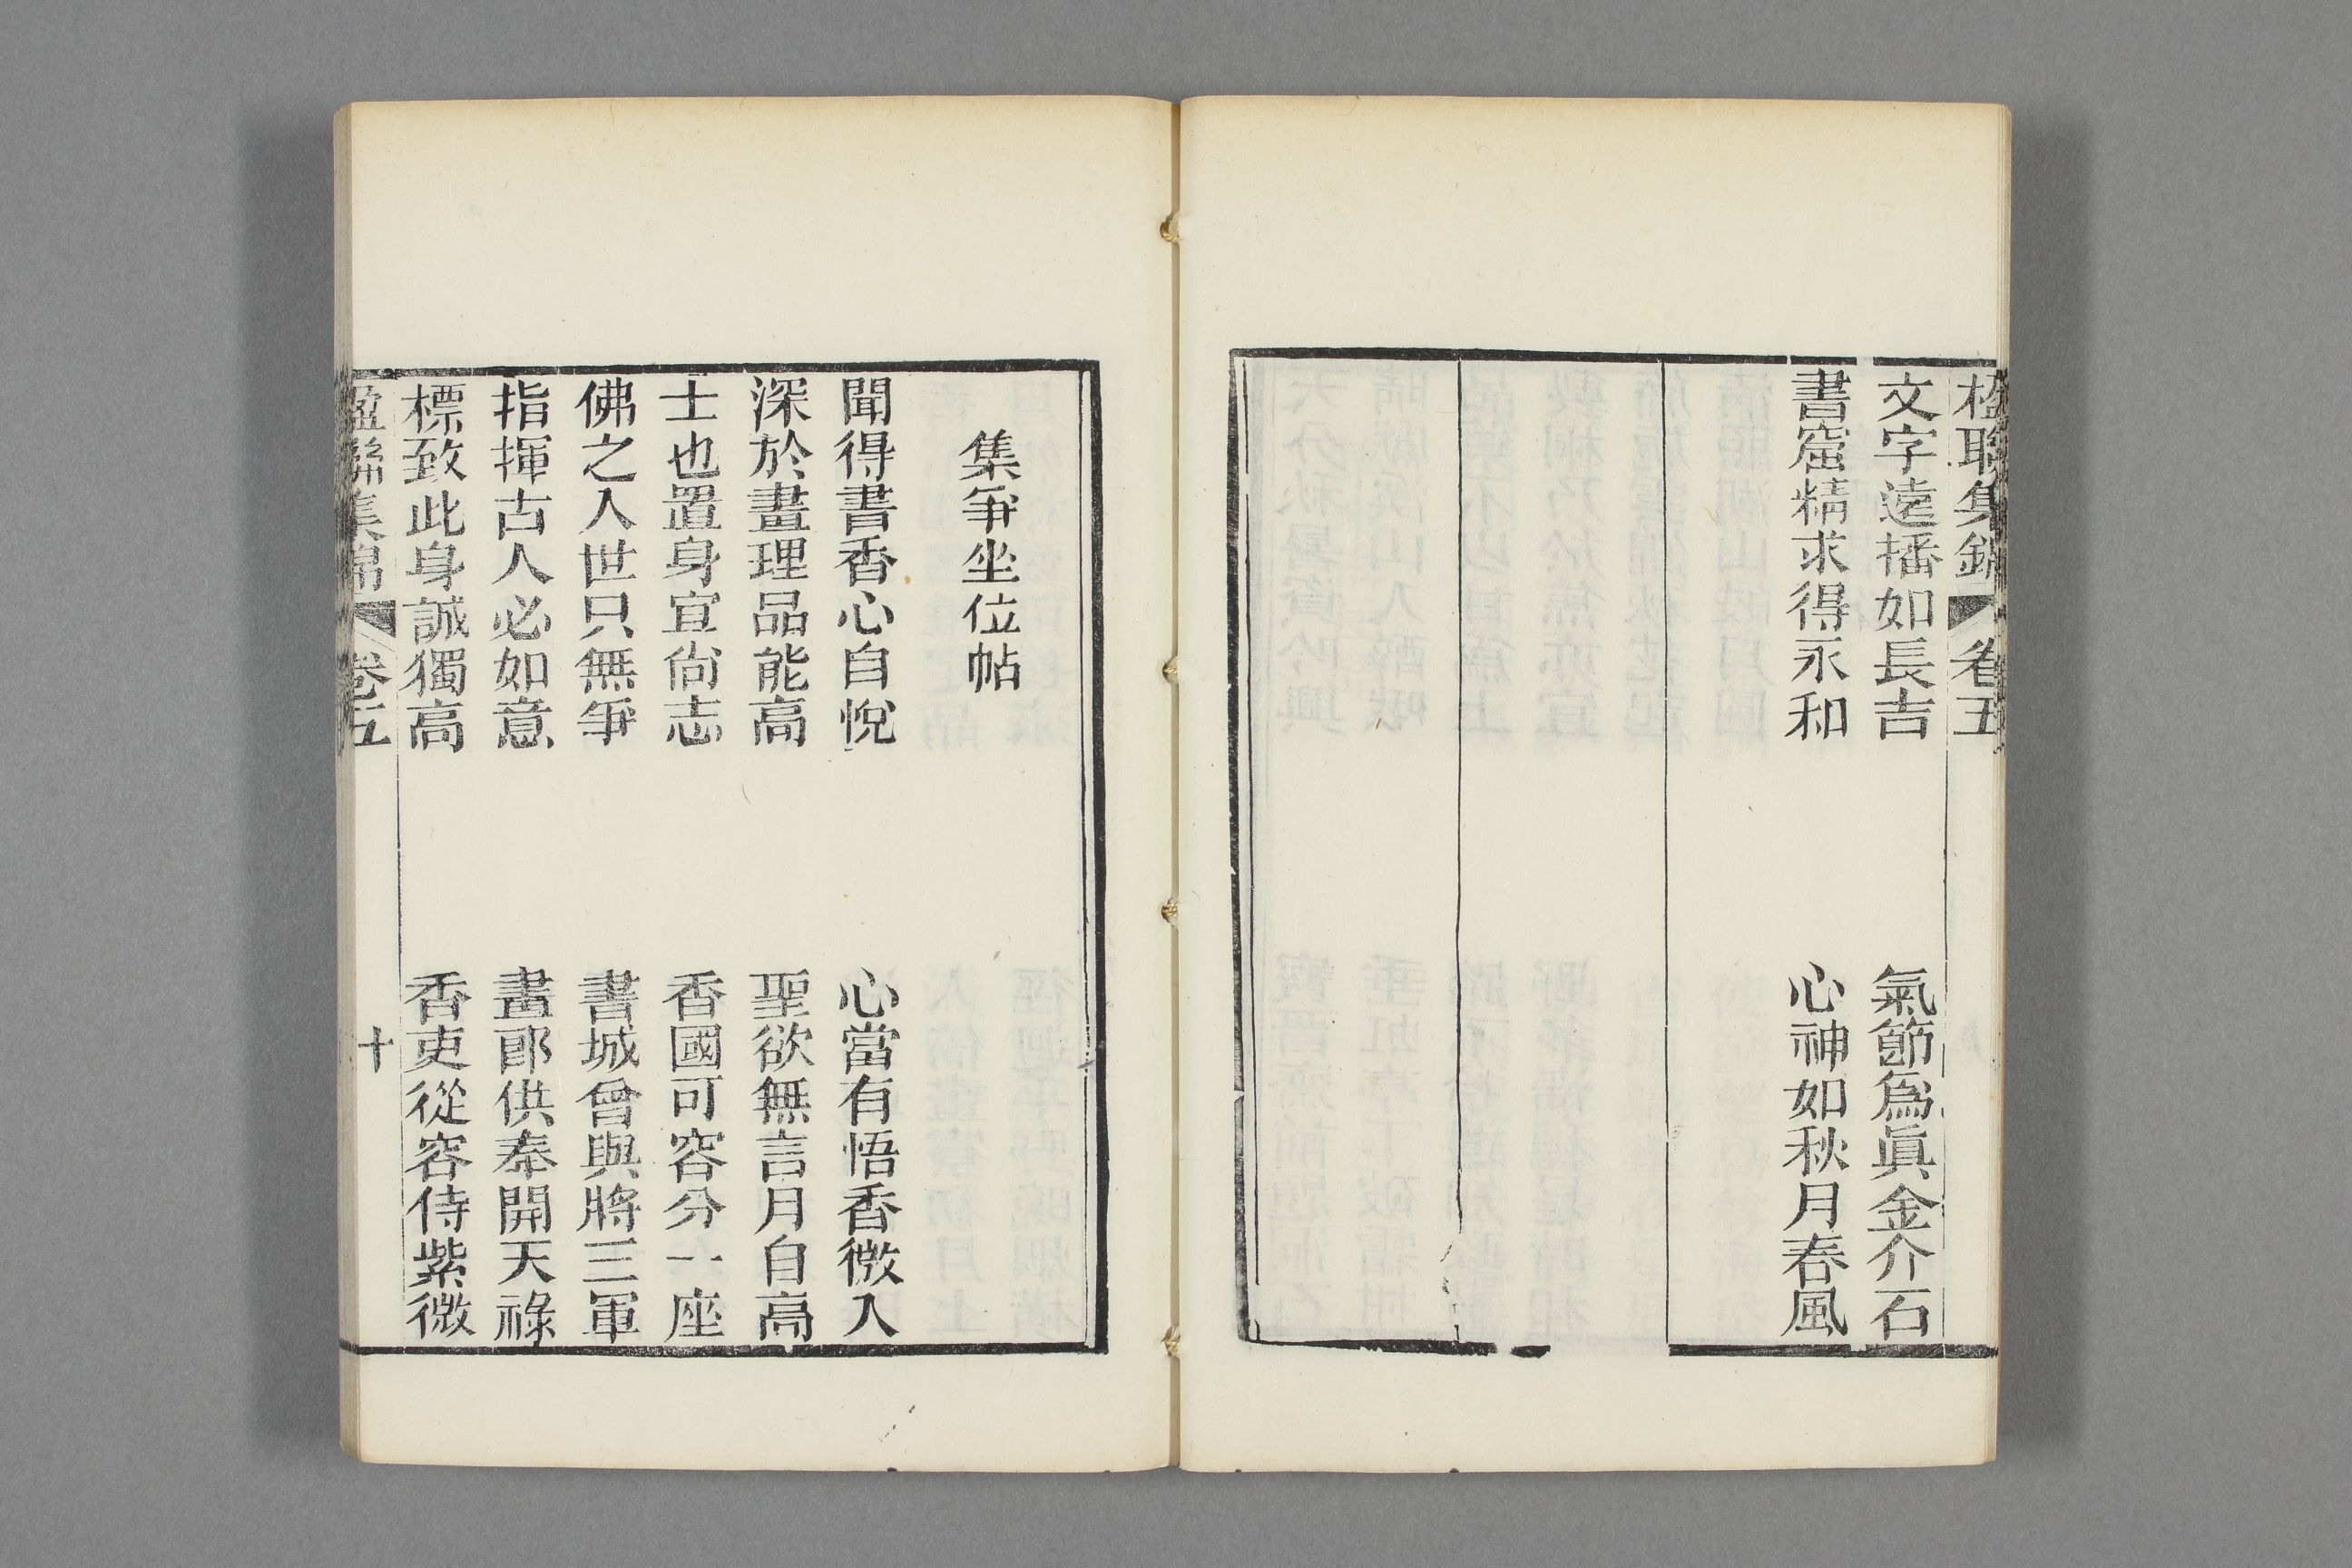 楹聯集錦 卷五
文字遠播如長吉 氣節爲眞金介石
書窟精求得永和 心神如秋月春風
集爭坐位帖
聞得書香心自悅 心當有悟香微入
深於畫理品能高 聖欲無言月自高
士也置身宜尙志 香國可容分一座
佛之入世只無爭 書城曾與將三軍
指揮古人必如意 畫郎供奉開天祿
標致此身誠獨高 香吏從容侍紫微
楹聯集錦 卷五 十